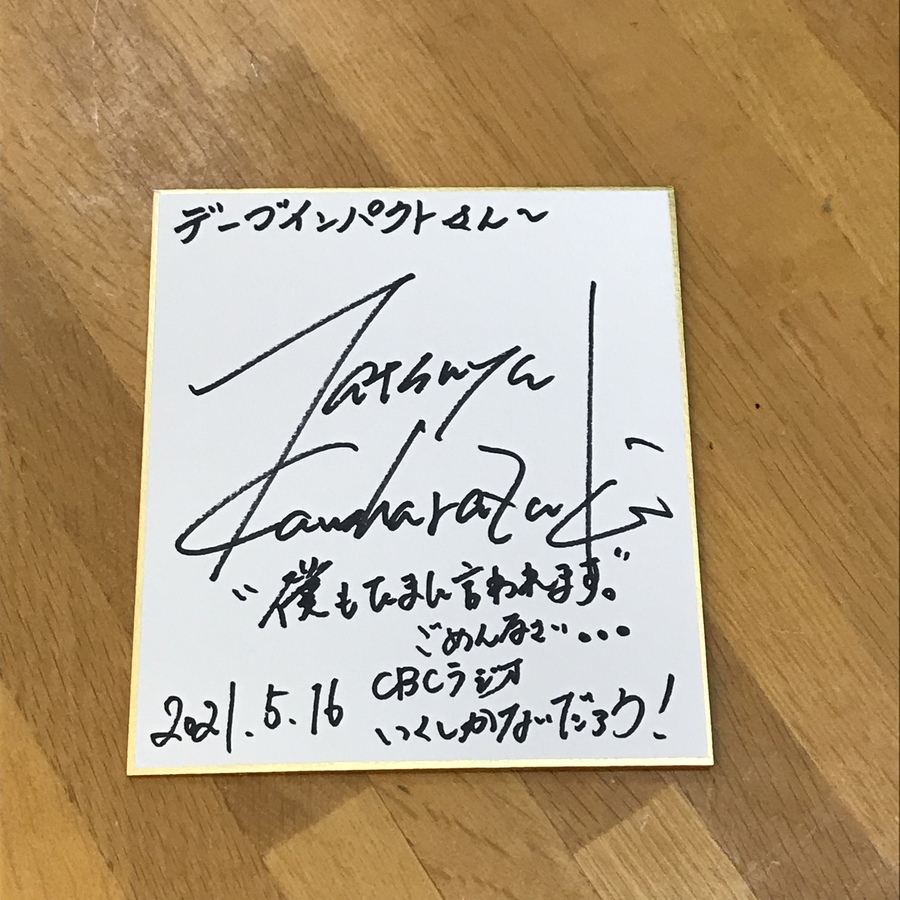 デーブインパクトさん〜
Tatsuya
Kawaharazuki
"僕もたまに言われます。"
ごめんなさい...
CBCラジオ
2021.5.16 いくしかないだろう!